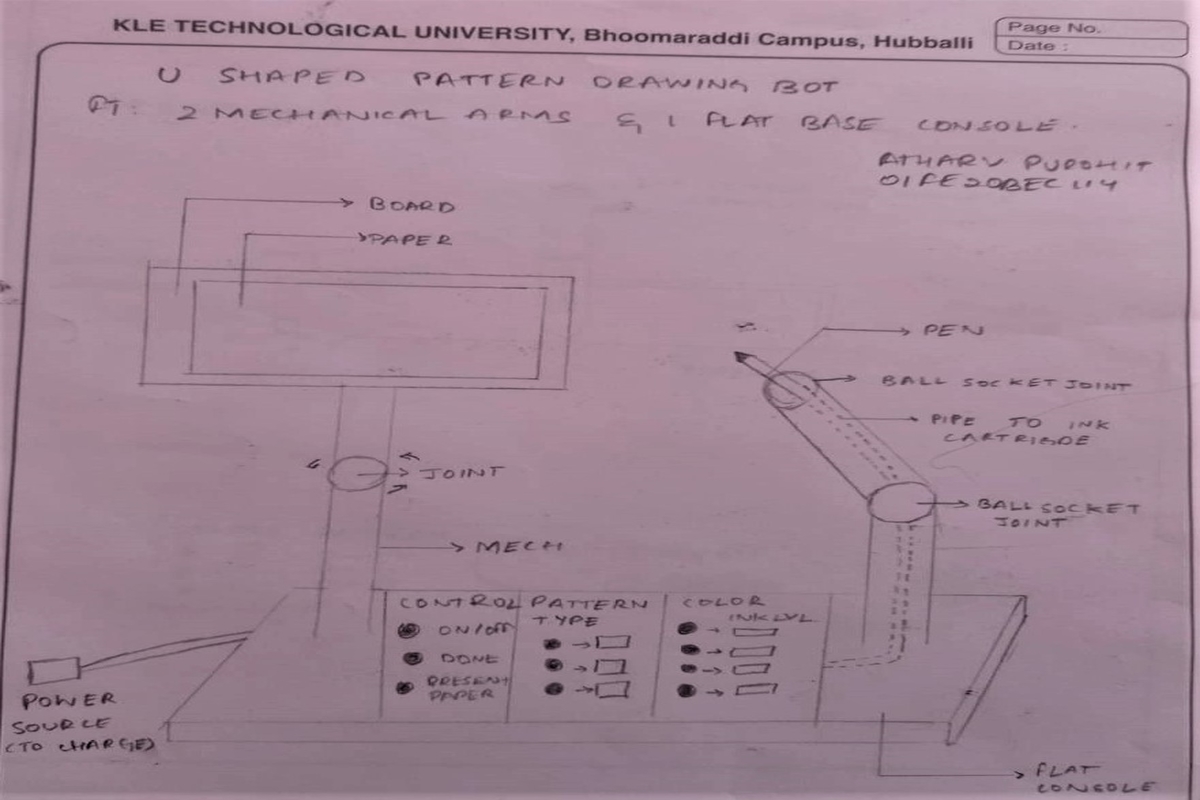 KLE TECHNOLOGICAL UNIVERSITY, Bhoomaraddi Campus, Hubballi
Page No.
Date :
U SHAPED PATTERN DRAWING BOT
PT: 2 MECHANICAL ARMS & 1 FLAT BASE CONSOLE.
ATHARV PUROHIT
01FE20BEC114
BOARD
PAPER
PEN
BALL SOCKET JOINT
PIPE TO INK
CARTRIGDE
JOINT
BALL SOCKET
JOINT
MECH
CONTROL
ON/OFF
DONE
PRESENT
PAPER
PATTERN
TYPE
COLOR
INK LVL
POWER
SOURCE
(TO CHARGE)
FLAT
CONSOLE